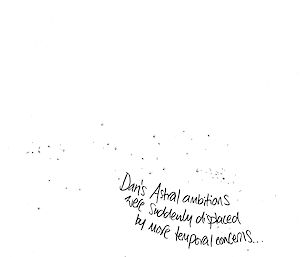 Dan's Astral ambitions
were suddenly displaced
by more temporal concerns...